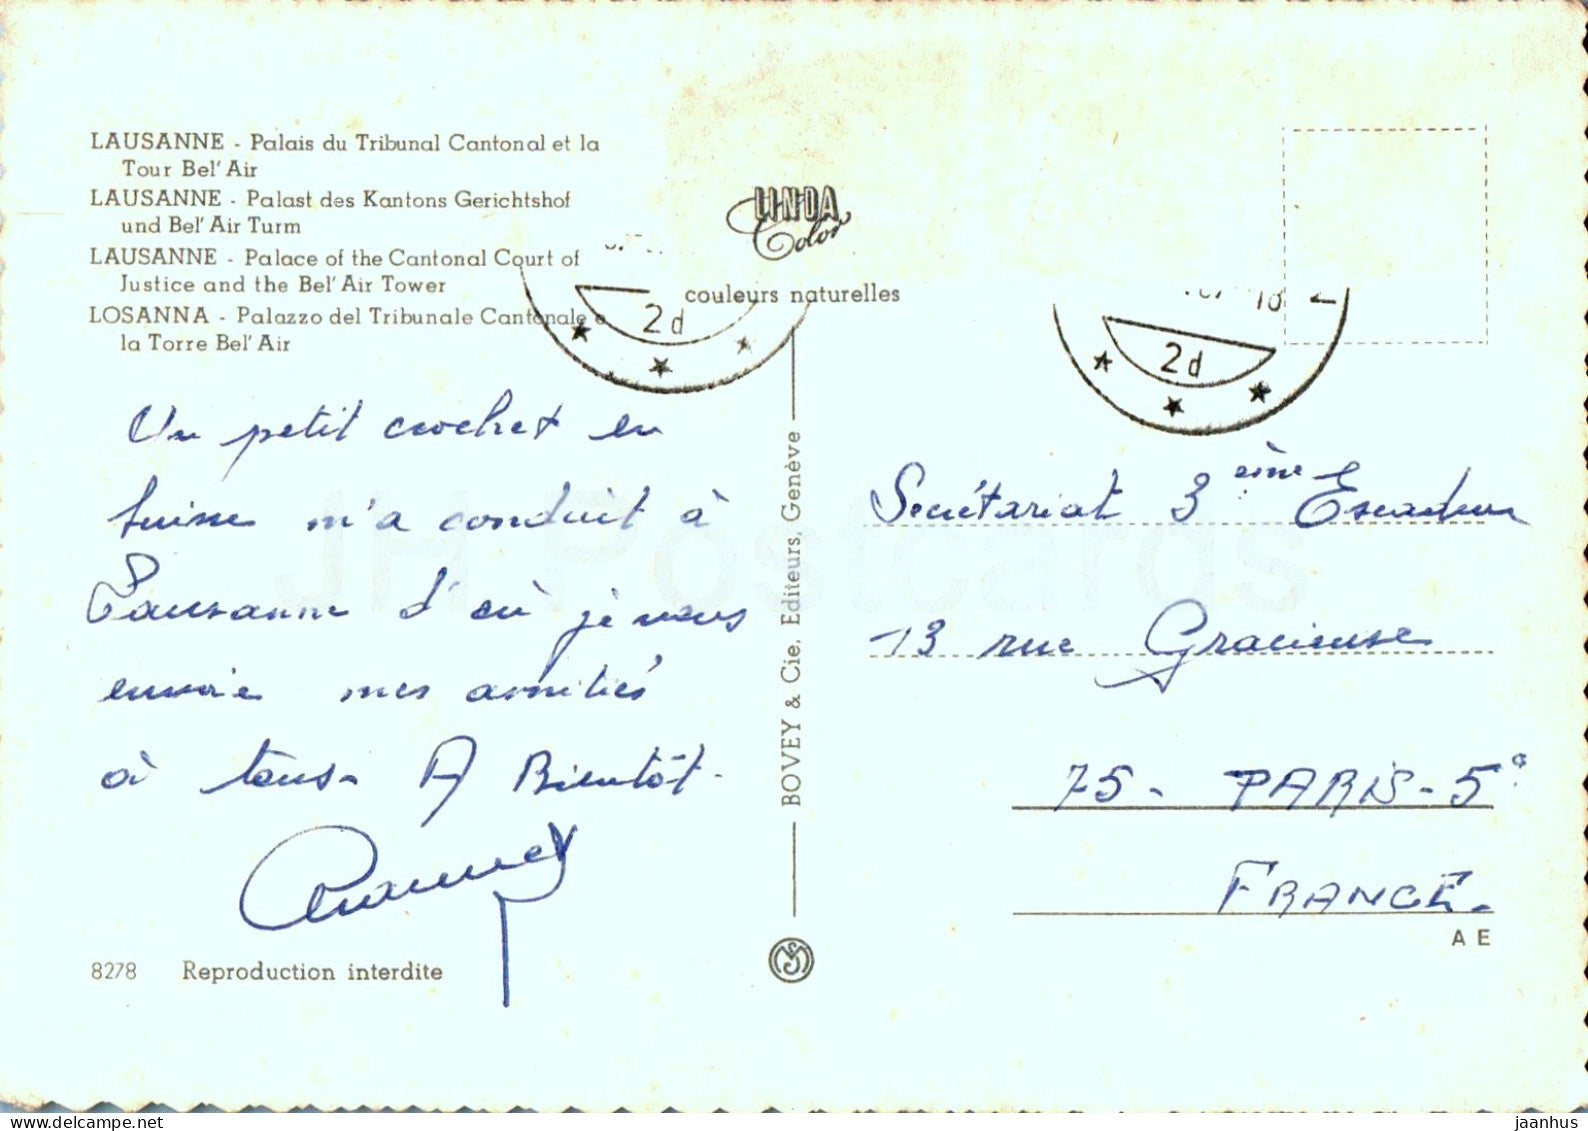 LAUSANNE - Palais du Tribunal Cantonal et la
Tour Bel' Air
LAUSANNE - Palast des Kantons Gerichtshof
und Bel' Air Turm
LAUSANNE - Palace of the Cantonal Court of
Justice and the Bel' Air Tower
LOSANNA - Palazzo del Tribunale Cantonale e
la Torre Bel' Air
LINDA
Color
couleurs naturelles
2d
2d
Un petit crochet en
Suisse m'a conduit à
Lausanne d'où je vous
envoie mes amitiés
à tous. A Bientôt.
8278 Reproduction interdite
BOVEY & Cie, Editeurs, Genève
Secrétariat 3ème Escadron
13 rue Gracieuse
75 - PARIS - 5°
FRANCE.
A E
JH Postcards
jaanhus